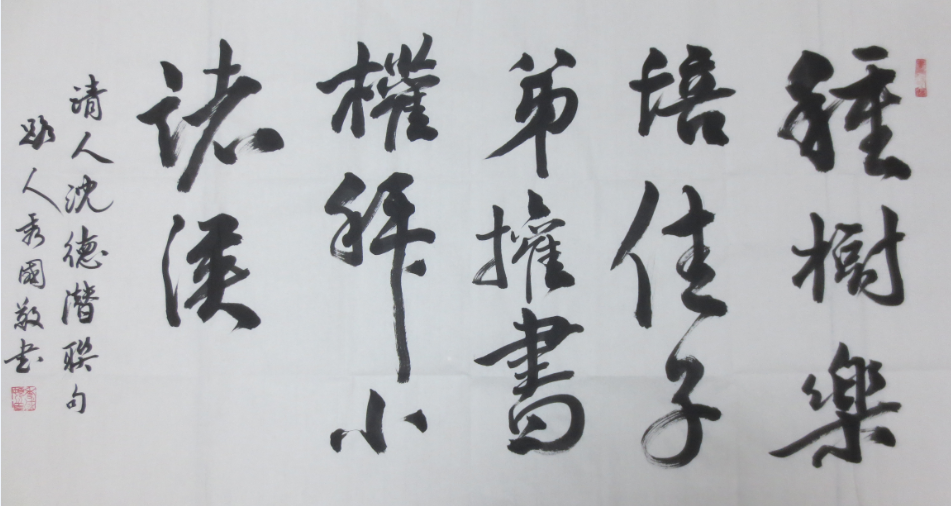 種樹樂
培佳子
弟擁書
權拜小
諸侯
清人沈德潛聯句
人秀國敬书